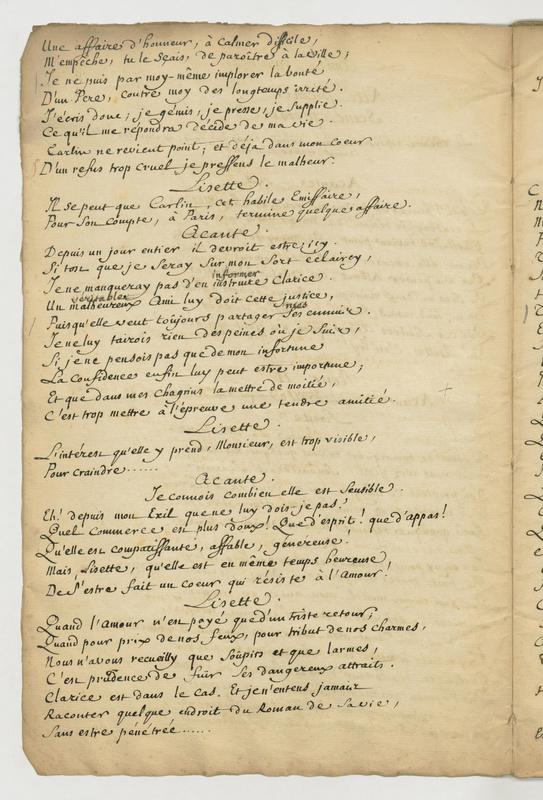 Une affaire d'honneur, à Calmer difficile,
M'empêche, tu le Sçais, de paroître à la Ville;
Je ne puis par moy-même implorer la bonté
D'un Pere, contre moy des longtemps irrité.
J'écris donc; je gémis, je presse, je Supplie.
Ce qu'il me répondra décide de ma vie.
Carlin ne revient point; et déja dans mon Coeur
D'un refus trop cruel je pressens le malheur.
Lisette.
Il se peut que Carlin, cet habile Emissaire,
Pour Son Compte, à Paris, termine quelque affaire.
Acante.
Depuis un jour entier il devroit estre icy.
Si tost que je Seray Sur mon Sort éclaircy,
informer
Je ne manqueray pas d'en instruire Clarice.
véritable
Un malheureux Ami luy doit cette justice,
mes
Puisqu'elle veut toujours partager Ses ennuis.
Je ne luy tairois rien des peines où je Suis,
Si je ne pensois pas que de mon infortune
La Confidence enfin luy peut estre importune;
Et que dans mes Chagrins la mettre de moitié,
C'est trop mettre à l'épreuve une tendre amitié.
Lisette.
L'intérest qu'elle y prend, Monsieur, est trop visible,
Pour craindre......
Acante.
Je connois combien elle est Sensible.
Eh! depuis mon Exil que ne luy dois-je pas!
Quel Commerce est plus doux! Que d'esprit! que d'appas!
Qu'elle est compatissante, affable, généreuse!
Mais Lisette, qu'elle est en même temps heureuse
De S'estre fait un Coeur qui résiste à l'Amour!
Lisette.
Quand l'Amour n'est payé que d'un triste retour;
Quand pour prix de nos feux, pour tribut de nos charmes,
Nous n'avons recueilly que Soupirs et que larmes,
C'est prudence de fuir Ses dangereux attraits.
Clarice est dans le Cas. Et je n'entens jamais
Raconter quelque endroit du Roman de Sa vie,
Sans estre pénétrée......